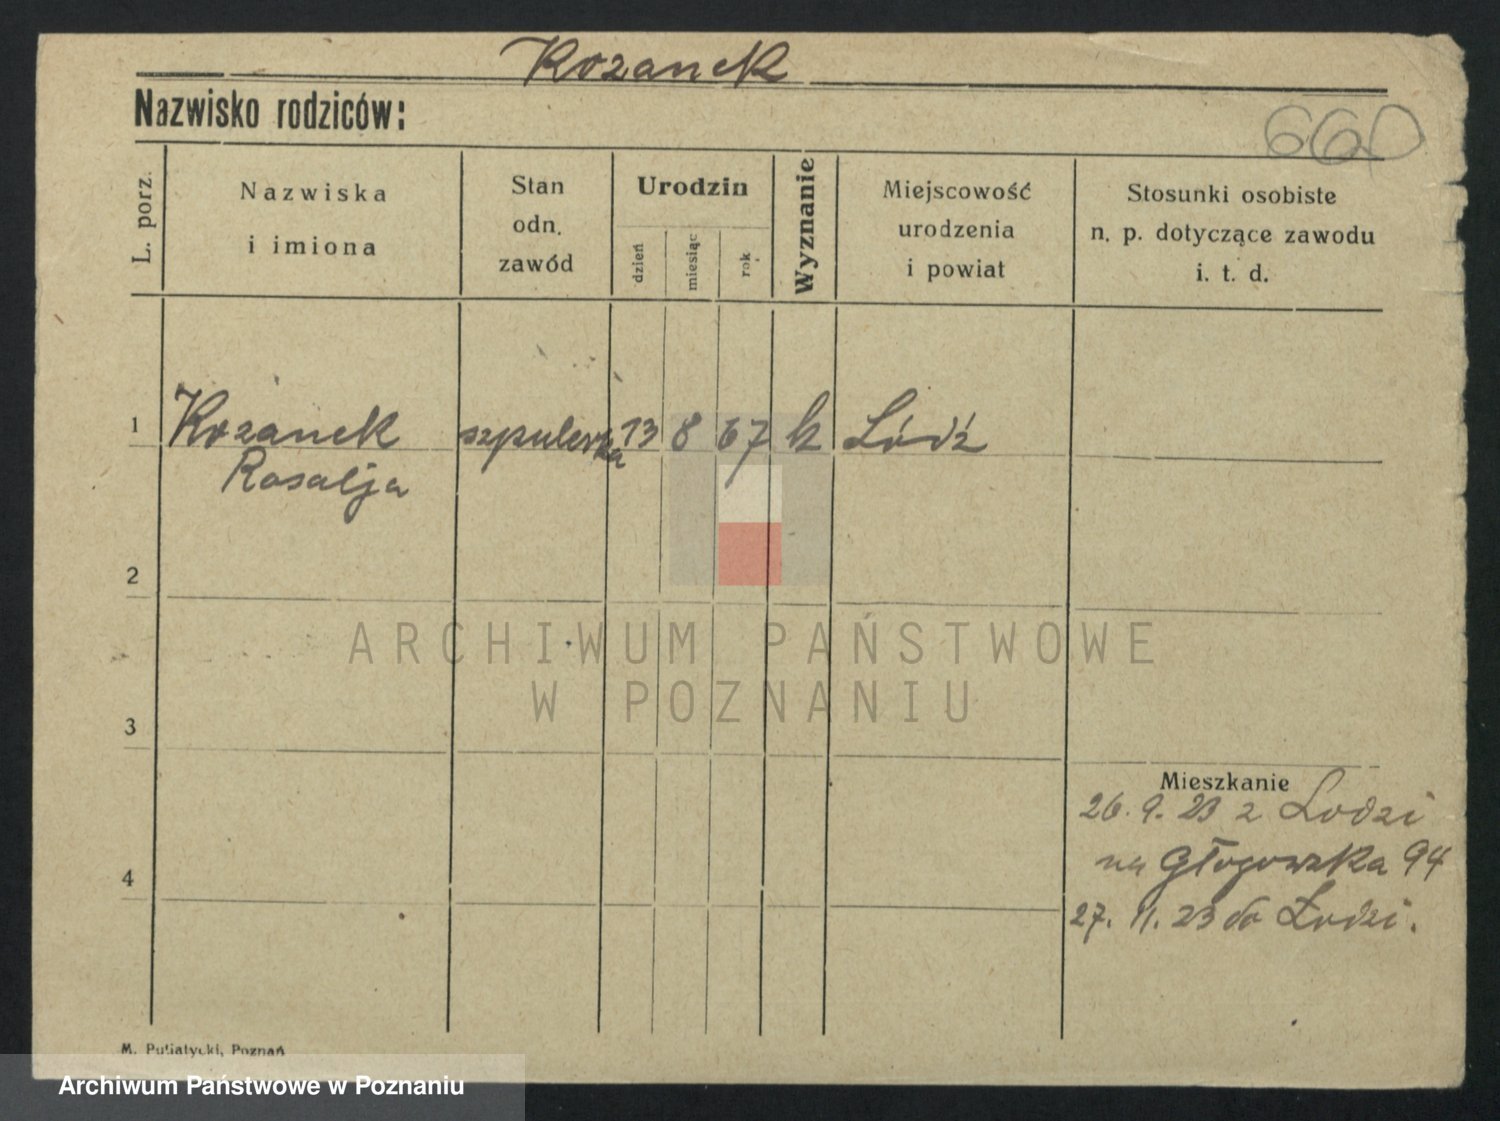 Kozanek
Nazwisko rodziców:
660
L. porz.
Nazwiska
i imiona
Stan
odn.
zawód
Urodzin
dzień
miesiąc
rok
Wyznanie
Miejscowość
urodzenia
i powiat
Stosunki osobiste
n. p. dotyczące zawodu
i. t. d.
1 Kozanek szpulerka 13 8 67 k Łódź
Rosalja
2
ARCHIWUM PAŃSTWOWE
W POZNANIU
3
Mieszkanie
26. 9. 23 z Lodzi
na Głogowska 94
4
27. 11. 23 do Łodzi.
M. Putiatycki, Poznań
Archiwum Państwowe w Poznaniu